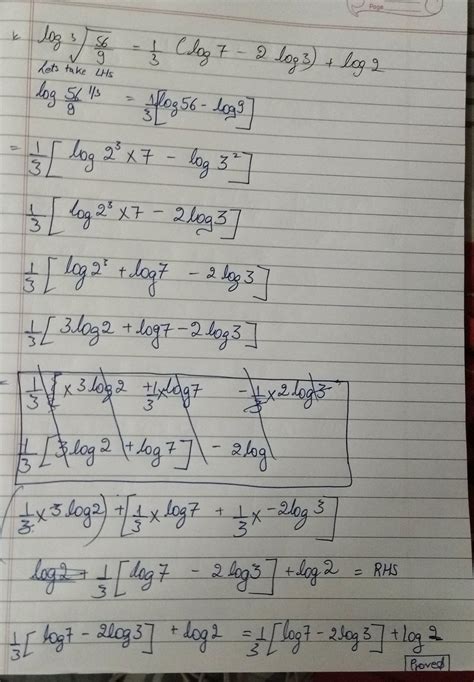 Page
k log ³√56/9 = 1/3 (log7 - 2 log3) + log2
Lets take LHS
log 56/9 ^1/3 = 1/3 [log56 - log9]
= 1/3 [log 2³ x 7 - log 3²]
1/3 [log2³ x 7 - 2log3]
1/3 [log2³ + log7 - 2log3]
1/3 [3log2 + log7 - 2log3]
= 1/3 [ x 3log2 + 1/3 x log7 - 1/3 x 2log3
1/3 [3log2 + log7] - 2log
(1/3 x 3log2) + [1/3 x log7 + 1/3 x -2log3]
log2 + 1/3 [log7 - 2log3] + log2 = RHS
1/3 [log7 - 2log3] + log2 = 1/3 [log7 - 2log3] + log2
Proved